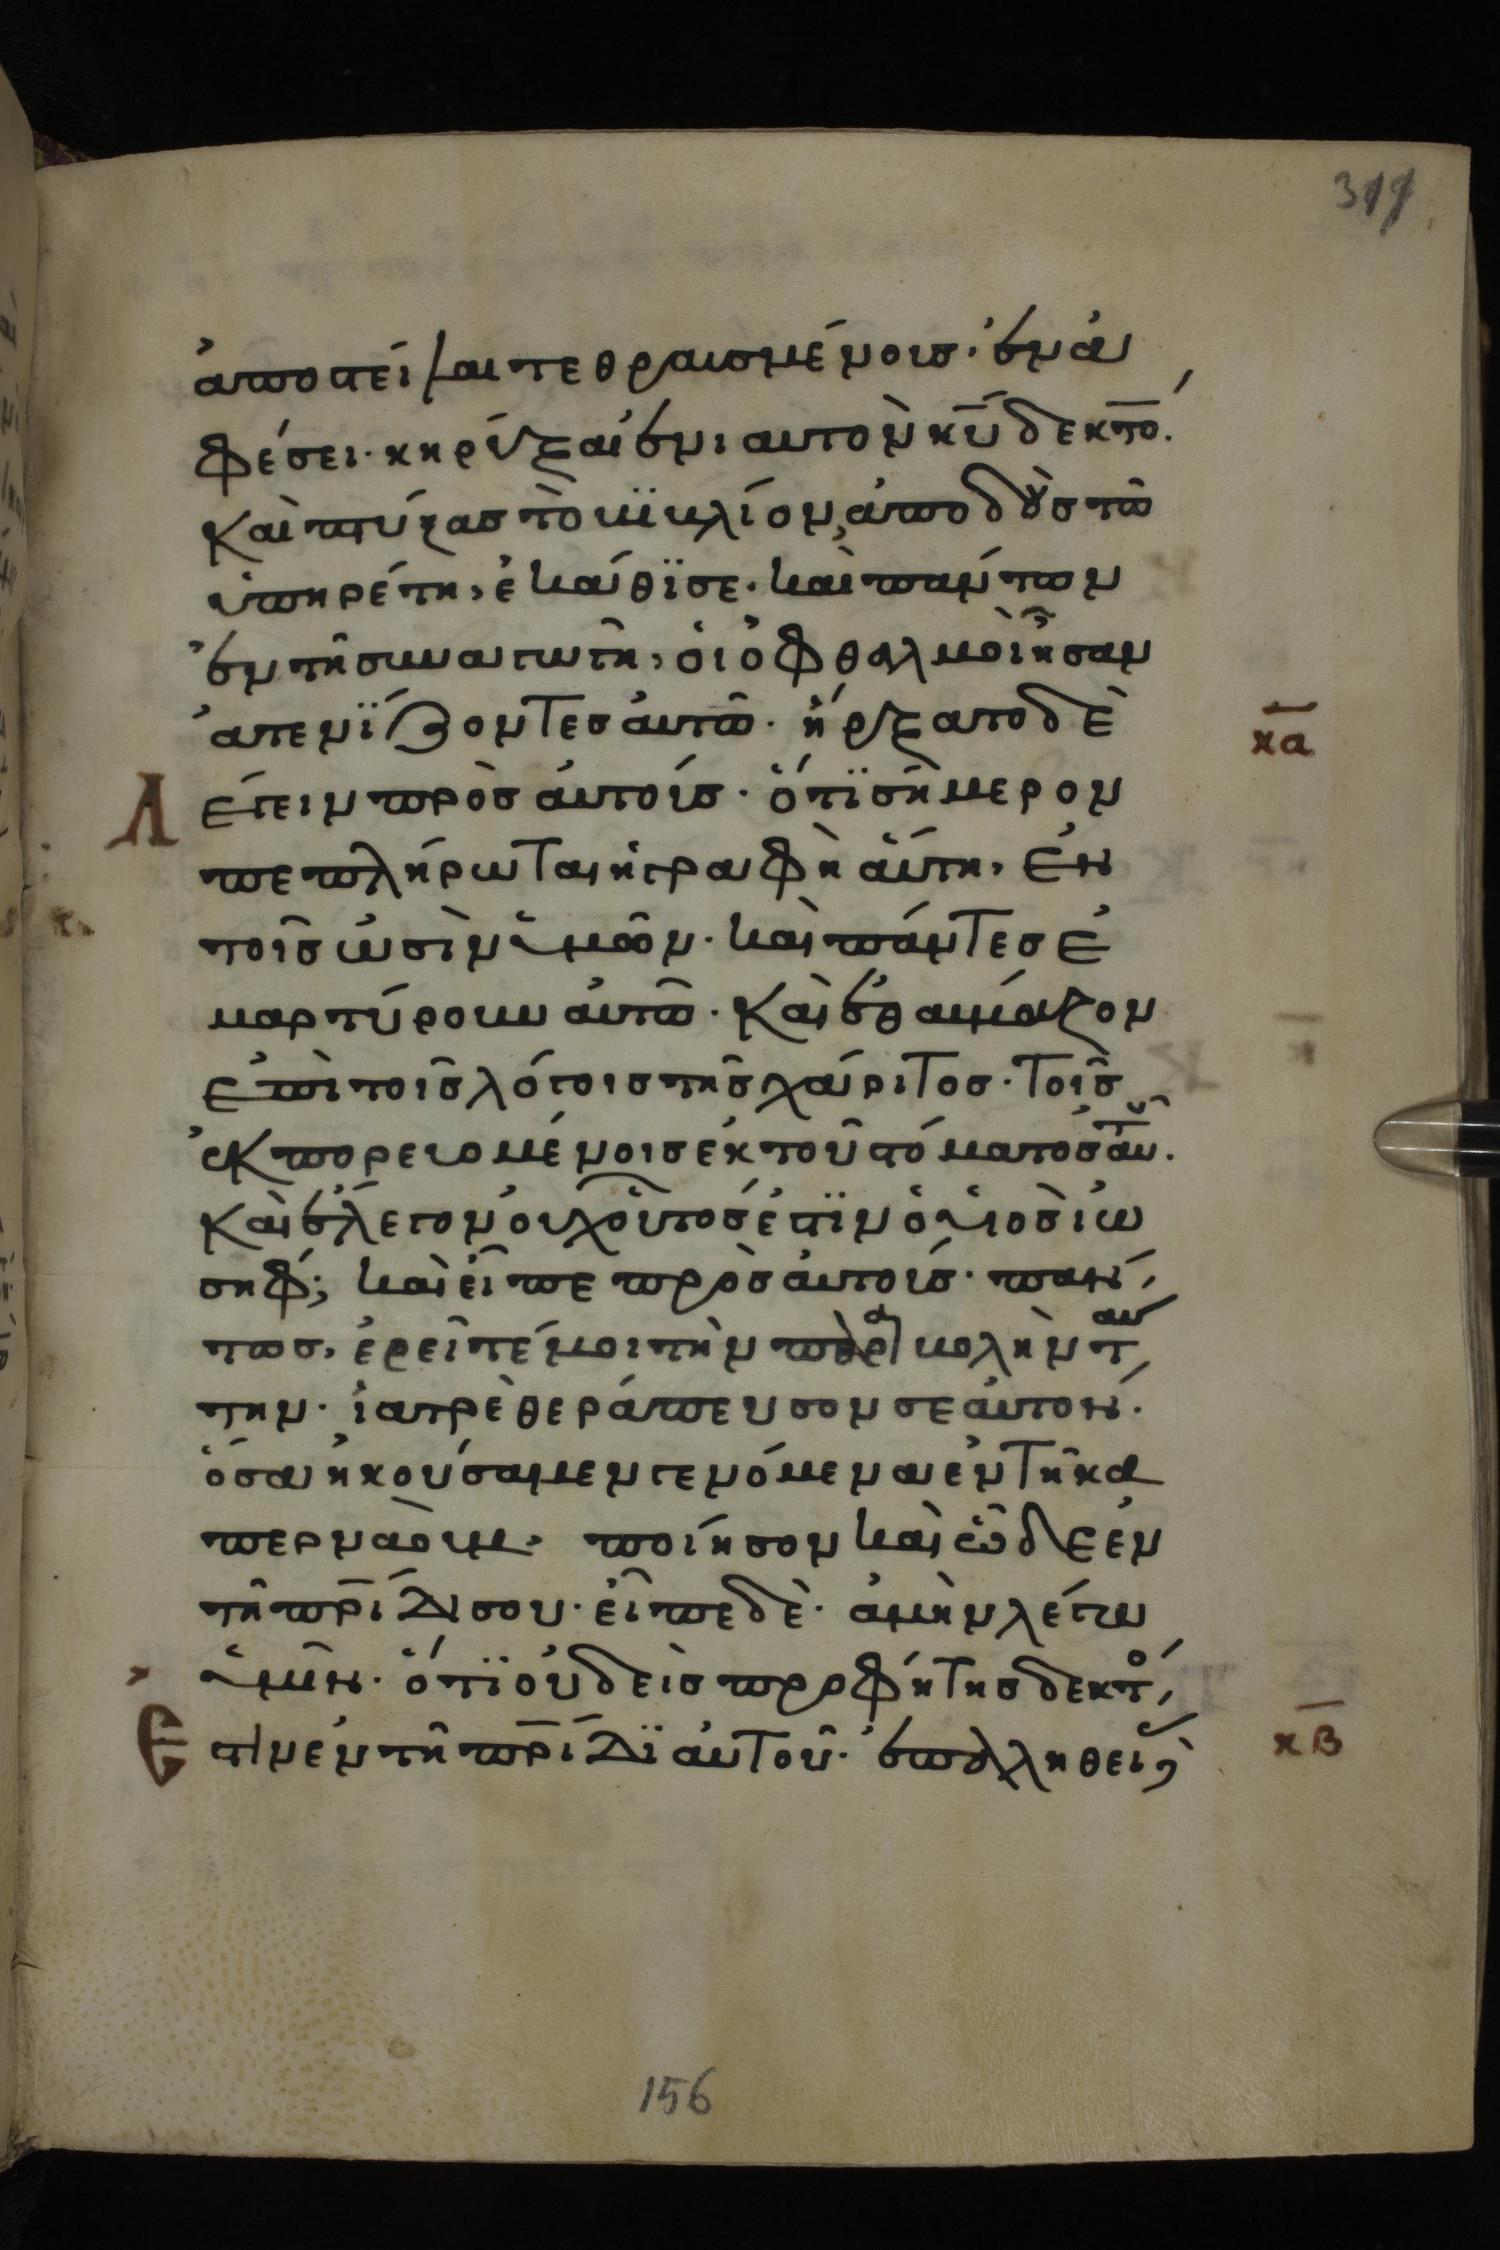 317
ἀποστείλαι τεθραυσμένοις· ἐν ἀ
φέσει· κηρύξαι ἐνιαυτὸν κ̅υ̅ δεκτό̅.
Καὶ πτύξας τὸ βιβλίον, ἀποδοὺς τῶ
ὑπηρέτη, ἐκάθϊσε· καὶ πάντων
ἐν τῆ συναγωγῆ, οἱ ὀφθαλμοὶ ἦσαν
ἀτενϊζοντες αὐτῶ· ἤρξατο δὲ
κ̅α̅
Λ έγειν πρὸς αὐτούς· ὅτϊ σήμερον
πεπλήρωται ἡ γραφὴ αὕτη, ἐν
τοῖς ὠσὶν ὑμῶν· καὶ πάντες ἐ
μαρτύρουν αὐτῶ· καὶ ἐθαύμαζον
ἐπὶ τοῖς λόγοις τῆς χάριτος· τοῖς
ἐκπορευομένοις ἐκ τοῦ στόματος αὐτοῦ.
Καὶ ἔλεγον οὐχ οὗτός ἐστϊν ὁ υἱὸς ἰω
σήφ; καὶ εἶπε πρὸς αὐτούς· πάν
τως, ἐρεῖτέ μοι τὴν παραβολὴν ταύ
την· ἰατρὲ θεράπευσον σεαυτόν·
ὅσα ἠκούσαμεν γενόμενα ἐν τῆ κα
περναούμ· ποίησον καὶ ὧδε ἐν
τῆ π̅ρ̅ίδι σου· εἶπε δὲ· ἀμὴν λέγω
ὑμῖν· ὅτϊ οὐδεὶς προφήτης δεκτό
Ε στιν ἐν τῆ π̅ρ̅ίδϊ αὐτοῦ· ἐπ ἀληθείας
κ̅β̅
156